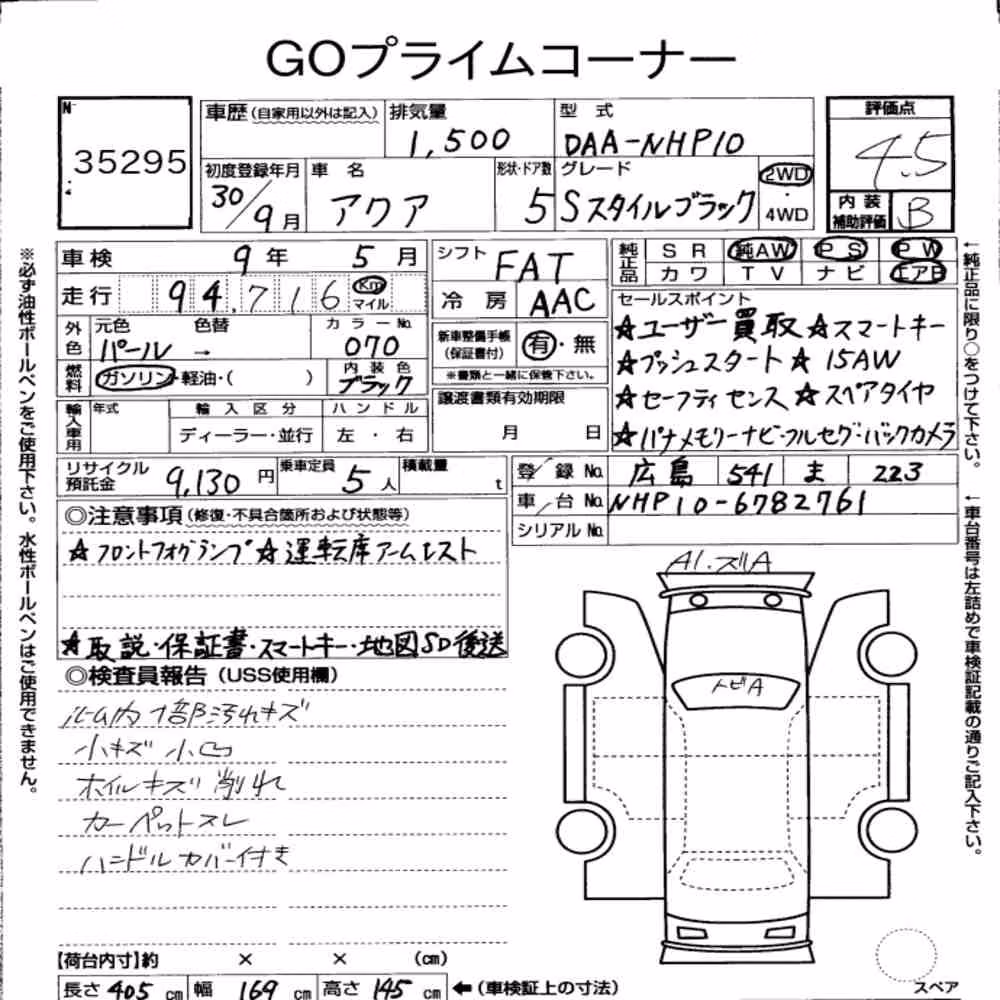 GOプライムコーナー
№ 35295
車歴(自家用以外は記入) 排気量 1,500 型式 DAA-NHP10 評価点 4.5
初度登録年月 30/9月 車名 アクア 形状・ドア数 5 グレード Sスタイルブラック 2WD・4WD 内装補助評価 B
車検 9年 5月 シフト FAT 純正品 SR 純AW PS PW
走行 94,716 Km マイル 冷房 AAC カワ TV ナビ エアB
外色 元色 パール → 色替 カラーNo. 070 新車整備手帳(保証書付) 有・無
※書類と一緒に保管下さい。
燃料 ガソリン・軽油・( ) 内装色 ブラック
輸入車用 年式 輸入区分 ディーラー・並行 ハンドル 左・右 譲渡書類有効期限 月 日
セールスポイント
★ユーザー買取★スマートキー
★プッシュスタート★15AW
★セーフティセンス★スペアタイヤ
★パナメモリーナビ・フルセグ・バックカメラ
リサイクル預託金 9,130円 乗車定員 5人 積載量 t
登録No. 広島 541 ま 223
車台No. NHP10-6782761
シリアルNo.
◎注意事項(修復・不具合箇所および状態等)
★フロントフォグランプ★運転席アームレスト
★取説・保証書・スマートキー・地図SD後送
◎検査員報告(USS使用欄)
ルーム内 1部汚れキズ
小キズ 小凹
ホイルキズ 削れ
カーペットスレ
ハンドルカバー付き
A1.ズレA
トビA
【荷台内寸】約 × × (cm)
長さ 405 cm 幅 169 cm 高さ 145 cm ←(車検証上の寸法)
スペア
※必ず油性ボールペンをご使用下さい。水性ボールペンはご使用できません。
←純正品に限り○をつけて下さい。
←車台番号は左詰めで車検証記載の通りご記入下さい。